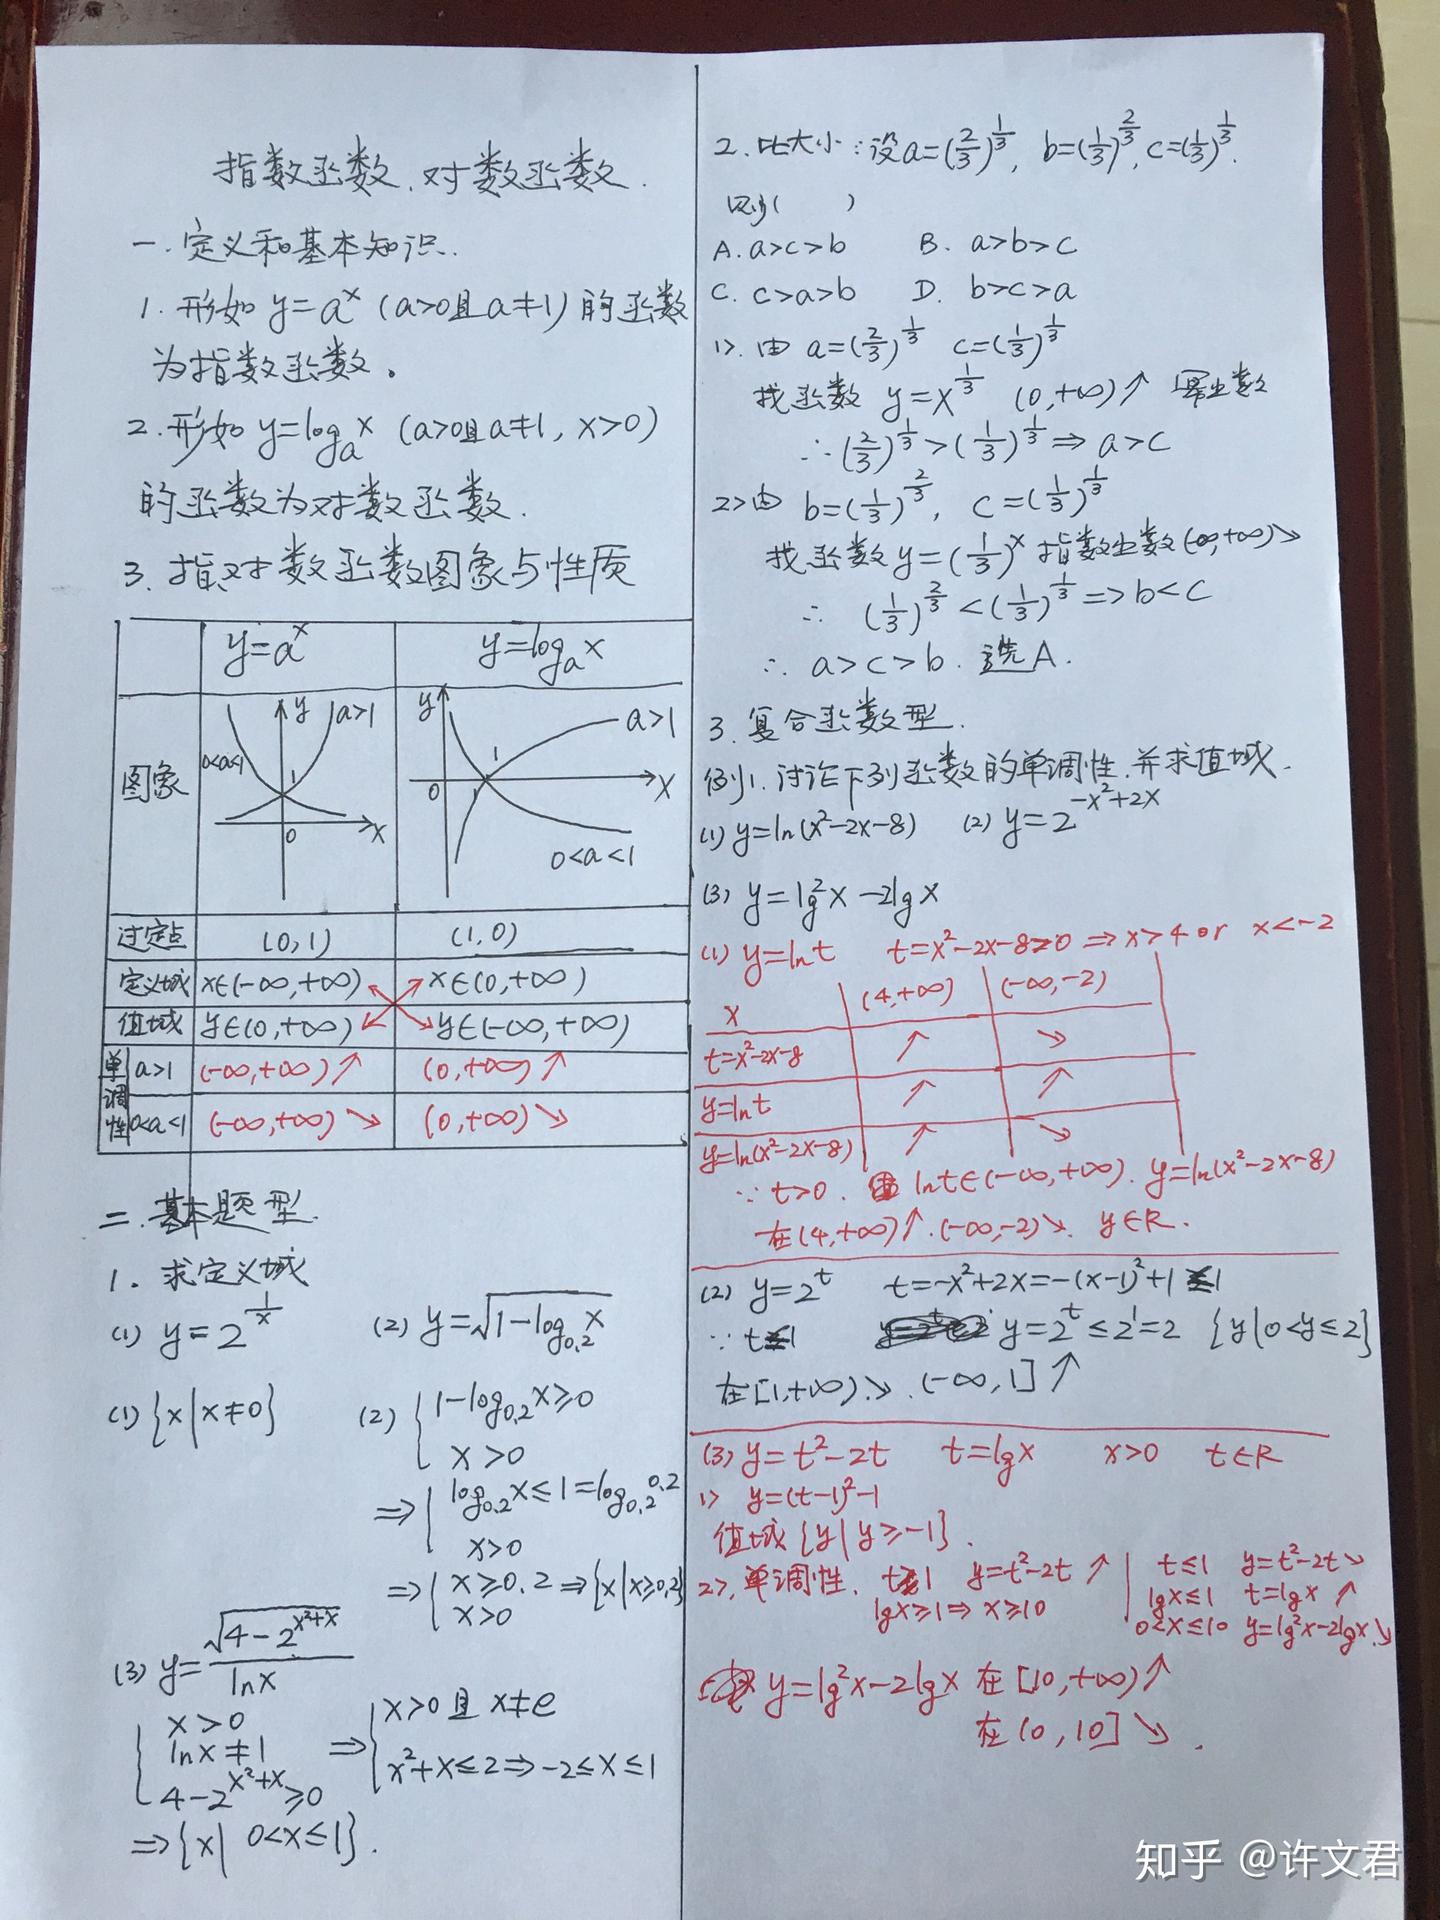 指数函数、对数函数.
一.定义和基本知识.
1.形如 y=a^x (a>0且a≠1)的函数
为指数函数。
2.形如 y=log_a x (a>0且a≠1, x>0)
的函数为对数函数.
3.指、对数函数图象与性质
y=a^x y=log_a x
图象
y a>1 0<a<1 1 0 x
y a>1 1 0 x 0<a<1
过定点 (0,1) (1,0)
定义域 x∈(-∞,+∞) x∈(0,+∞)
值域 y∈(0,+∞) y∈(-∞,+∞)
单调性 a>1 (-∞,+∞)↗ (0,+∞)↗
0<a<1 (-∞,+∞)↘ (0,+∞)↘
二.基本题型.
1.求定义域
(1) y=2^(1/x) (2) y=√(1-log_0.2 x)
(1) {x|x≠0} (2) { 1-log_0.2 x≥0
x>0
⇒{ log_0.2 x≤1=log_0.2 0.2
x>0
⇒{ x≥0.2 ⇒{x|x≥0.2}
x>0
(3) y=√(4-2^(x²+x))/lnx
{ x>0
lnx≠1
4-2^(x²+x)≥0
⇒{ x>0且x≠e
x²+x≤2⇒-2≤x≤1
⇒{x| 0<x≤1}.
2.比大小:设a=(2/3)^(1/3), b=(1/3)^(2/3), c=(1/3)^(1/3).
则( )
A. a>c>b B. a>b>c
C. c>a>b D. b>c>a
1>.由 a=(2/3)^(1/3) c=(1/3)^(1/3)
找函数 y=x^(1/3) (0,+∞)↗ 幂函数
∴(2/3)^(1/3)>(1/3)^(1/3)⇒a>c
2>由 b=(1/3)^(2/3), c=(1/3)^(1/3)
找函数y=(1/3)^x 指数函数(-∞,+∞)↘
∴ (1/3)^(2/3)<(1/3)^(1/3)⇒b<c
∴ a>c>b. 选A.
3.复合函数型.
例1.讨论下列函数的单调性.并求值域.
(1) y=ln(x²-2x-8) (2) y=2^(-x²+2x)
(3) y=lg²x-2lgx
(1) y=lnt t=x²-2x-8>0 ⇒x>4 or x<-2
x (4,+∞) (-∞,-2)
t=x²-2x-8 ↗ ↘
y=lnt ↗ ↗
y=ln(x²-2x-8) ↗ ↘
∵ t>0. lnt∈(-∞,+∞). y=ln(x²-2x-8)
在(4,+∞)↗.(-∞,-2)↘. y∈R.
(2) y=2^t t=-x²+2x=-(x-1)²+1≤1
∵ t≤1 y=2^t≤2^1=2 {y|0<y≤2}
在[1,+∞)↘.(-∞,1]↗
(3) y=t²-2t t=lgx x>0 t∈R
1> y=(t-1)²-1
值域{y|y≥-1}.
2>.单调性. t≥1 y=t²-2t↗
lgx≥1⇒x≥10
t≤1 y=t²-2t↘
lgx≤1 t=lgx↗
0<x≤10 y=lg²x-2lgx↘
y=lg²x-2lgx 在[10,+∞)↗
在(0,10]↘.
知乎 @许文君